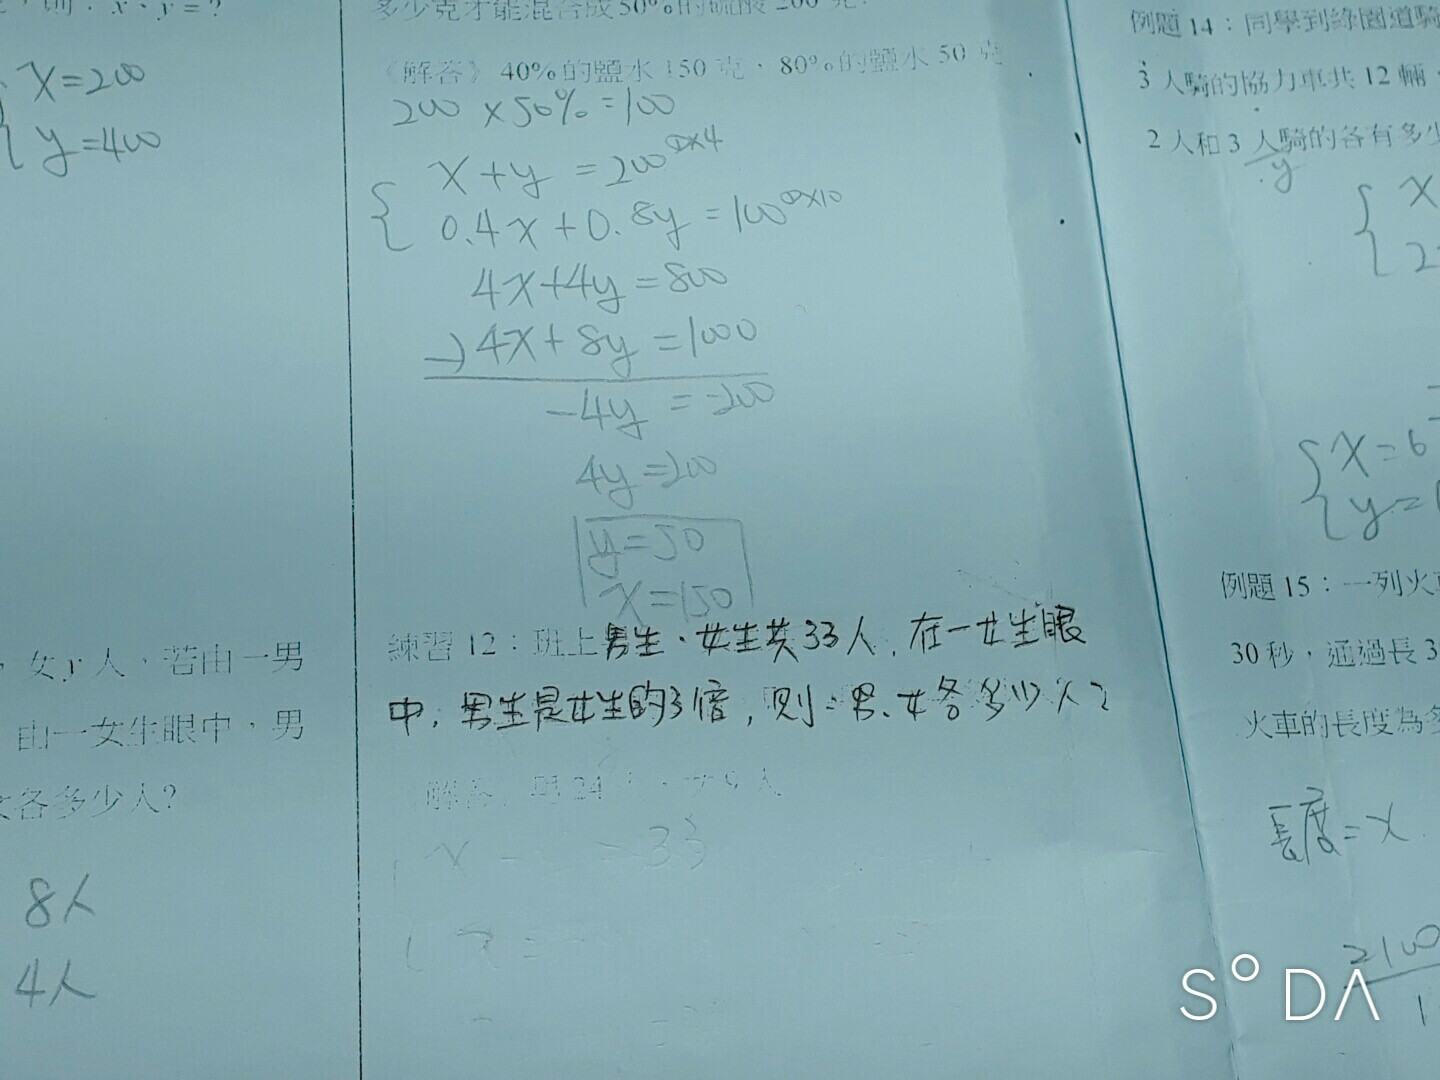 ，則：x、y=?
x=200
y=400
，女y人，若由一男
由一女生眼中，男
女各多少人?
8人
4人
多少克才能混合成50%的硫酸200克?
《解答》40%的鹽水150克、80%的鹽水50克
200×50%=100
x+y=200
0.4x+0.8y=100
4x+4y=800
-)4x+8y=1000
-4y=-200
4y=200
y=50
x=150
練習12：班上男生、女生共33人，在一女生眼
中，男生是女生的3倍，則：男、女各多少人?
解答 男24 、女9人
x = 33
例題14：同學到綠園道騎
3人騎的協力車共12輛，
2人和3人騎的各有多少
y
x
2
x=6
y=
例題15：一列火車
30秒，通過長3
火車的長度為多
長度=x
2100
1
SODA